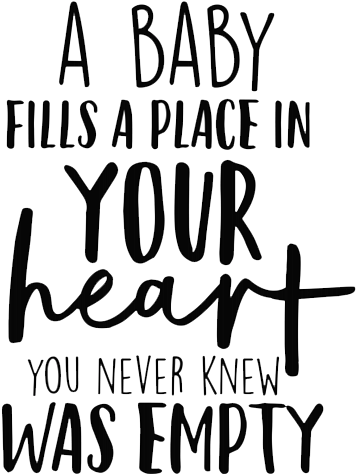 A BABY
FILLS A PLACE IN
YOUR
heart
YOU NEVER KNEW
WAS EMPTY